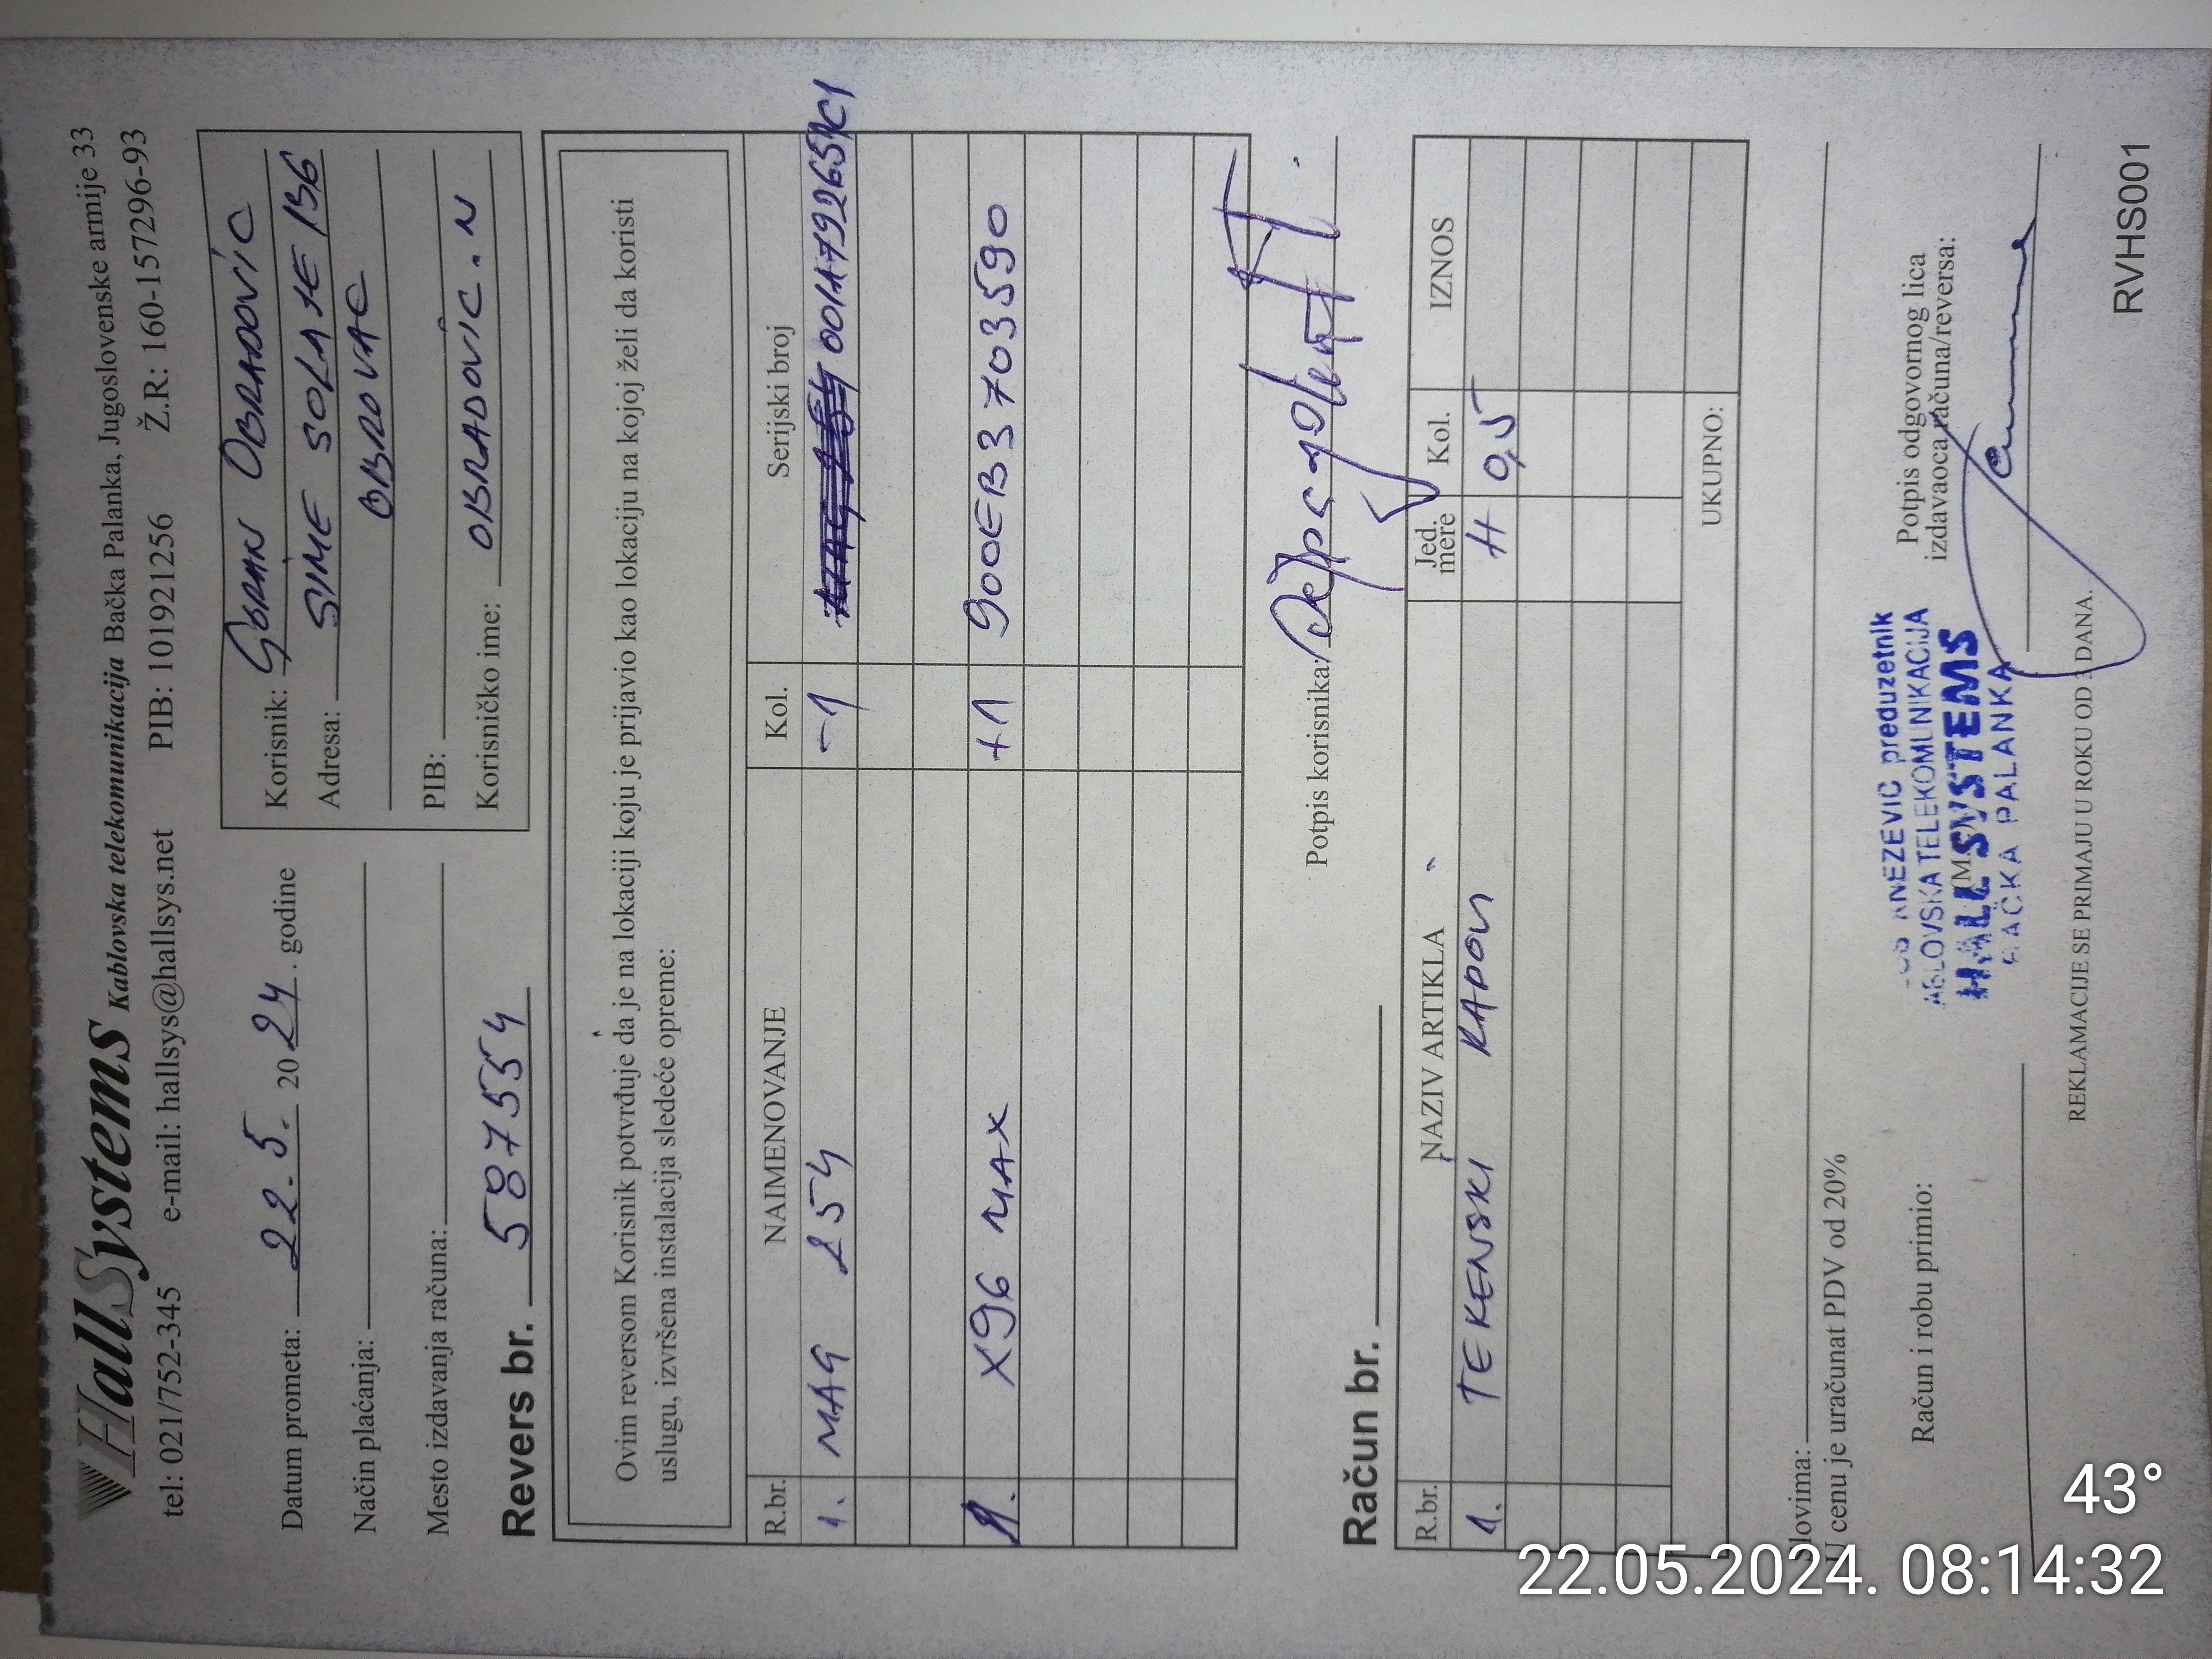 HallSystems Kablovska telekomunikacija Bačka Palanka, Jugoslovenske armije 33
tel: 021/752-345 e-mail: hallsys@hallsys.net PIB: 101921256 Ž.R: 160-157296-93
Datum prometa: 22.5. 2024. godine
Način plaćanja:
Mesto izdavanja računa:
Korisnik: GORAN OBRADOVIĆ
Adresa: SIME SOLAJE 136
OBROVAC
PIB:
Korisničko ime: OBRADOVIC.N
Revers br. 587554
Ovim reversom Korisnik potvrđuje da je na lokaciji koju je prijavio kao lokaciju na kojoj želi da koristi
uslugu, izvršena instalacija sledeće opreme:
R.br. NAIMENOVANJE Kol. Serijski broj
1. MAG 254 -1
1. X96 MAX +1 900EB3703590
Potpis korisnika:
Račun br.
R.br. NAZIV ARTIKLA Jed. mere Kol. IZNOS
1. TEKENSKI RADOVI H 0,5
UKUPNO:
Slovima:
U cenu je uračunat PDV od 20%
Račun i robu primio:
KNEZEVIC preduzetnik
ABLOVSKA TELEKOMUNIKACIJA
HALL SYSTEMS
BAČKA PALANKA
Potpis odgovornog lica
izdavaoca računa/reversa:
REKLAMACIJE SE PRIMAJU U ROKU OD 3 DANA.
RVHS001
43°
22.05.2024. 08:14:32